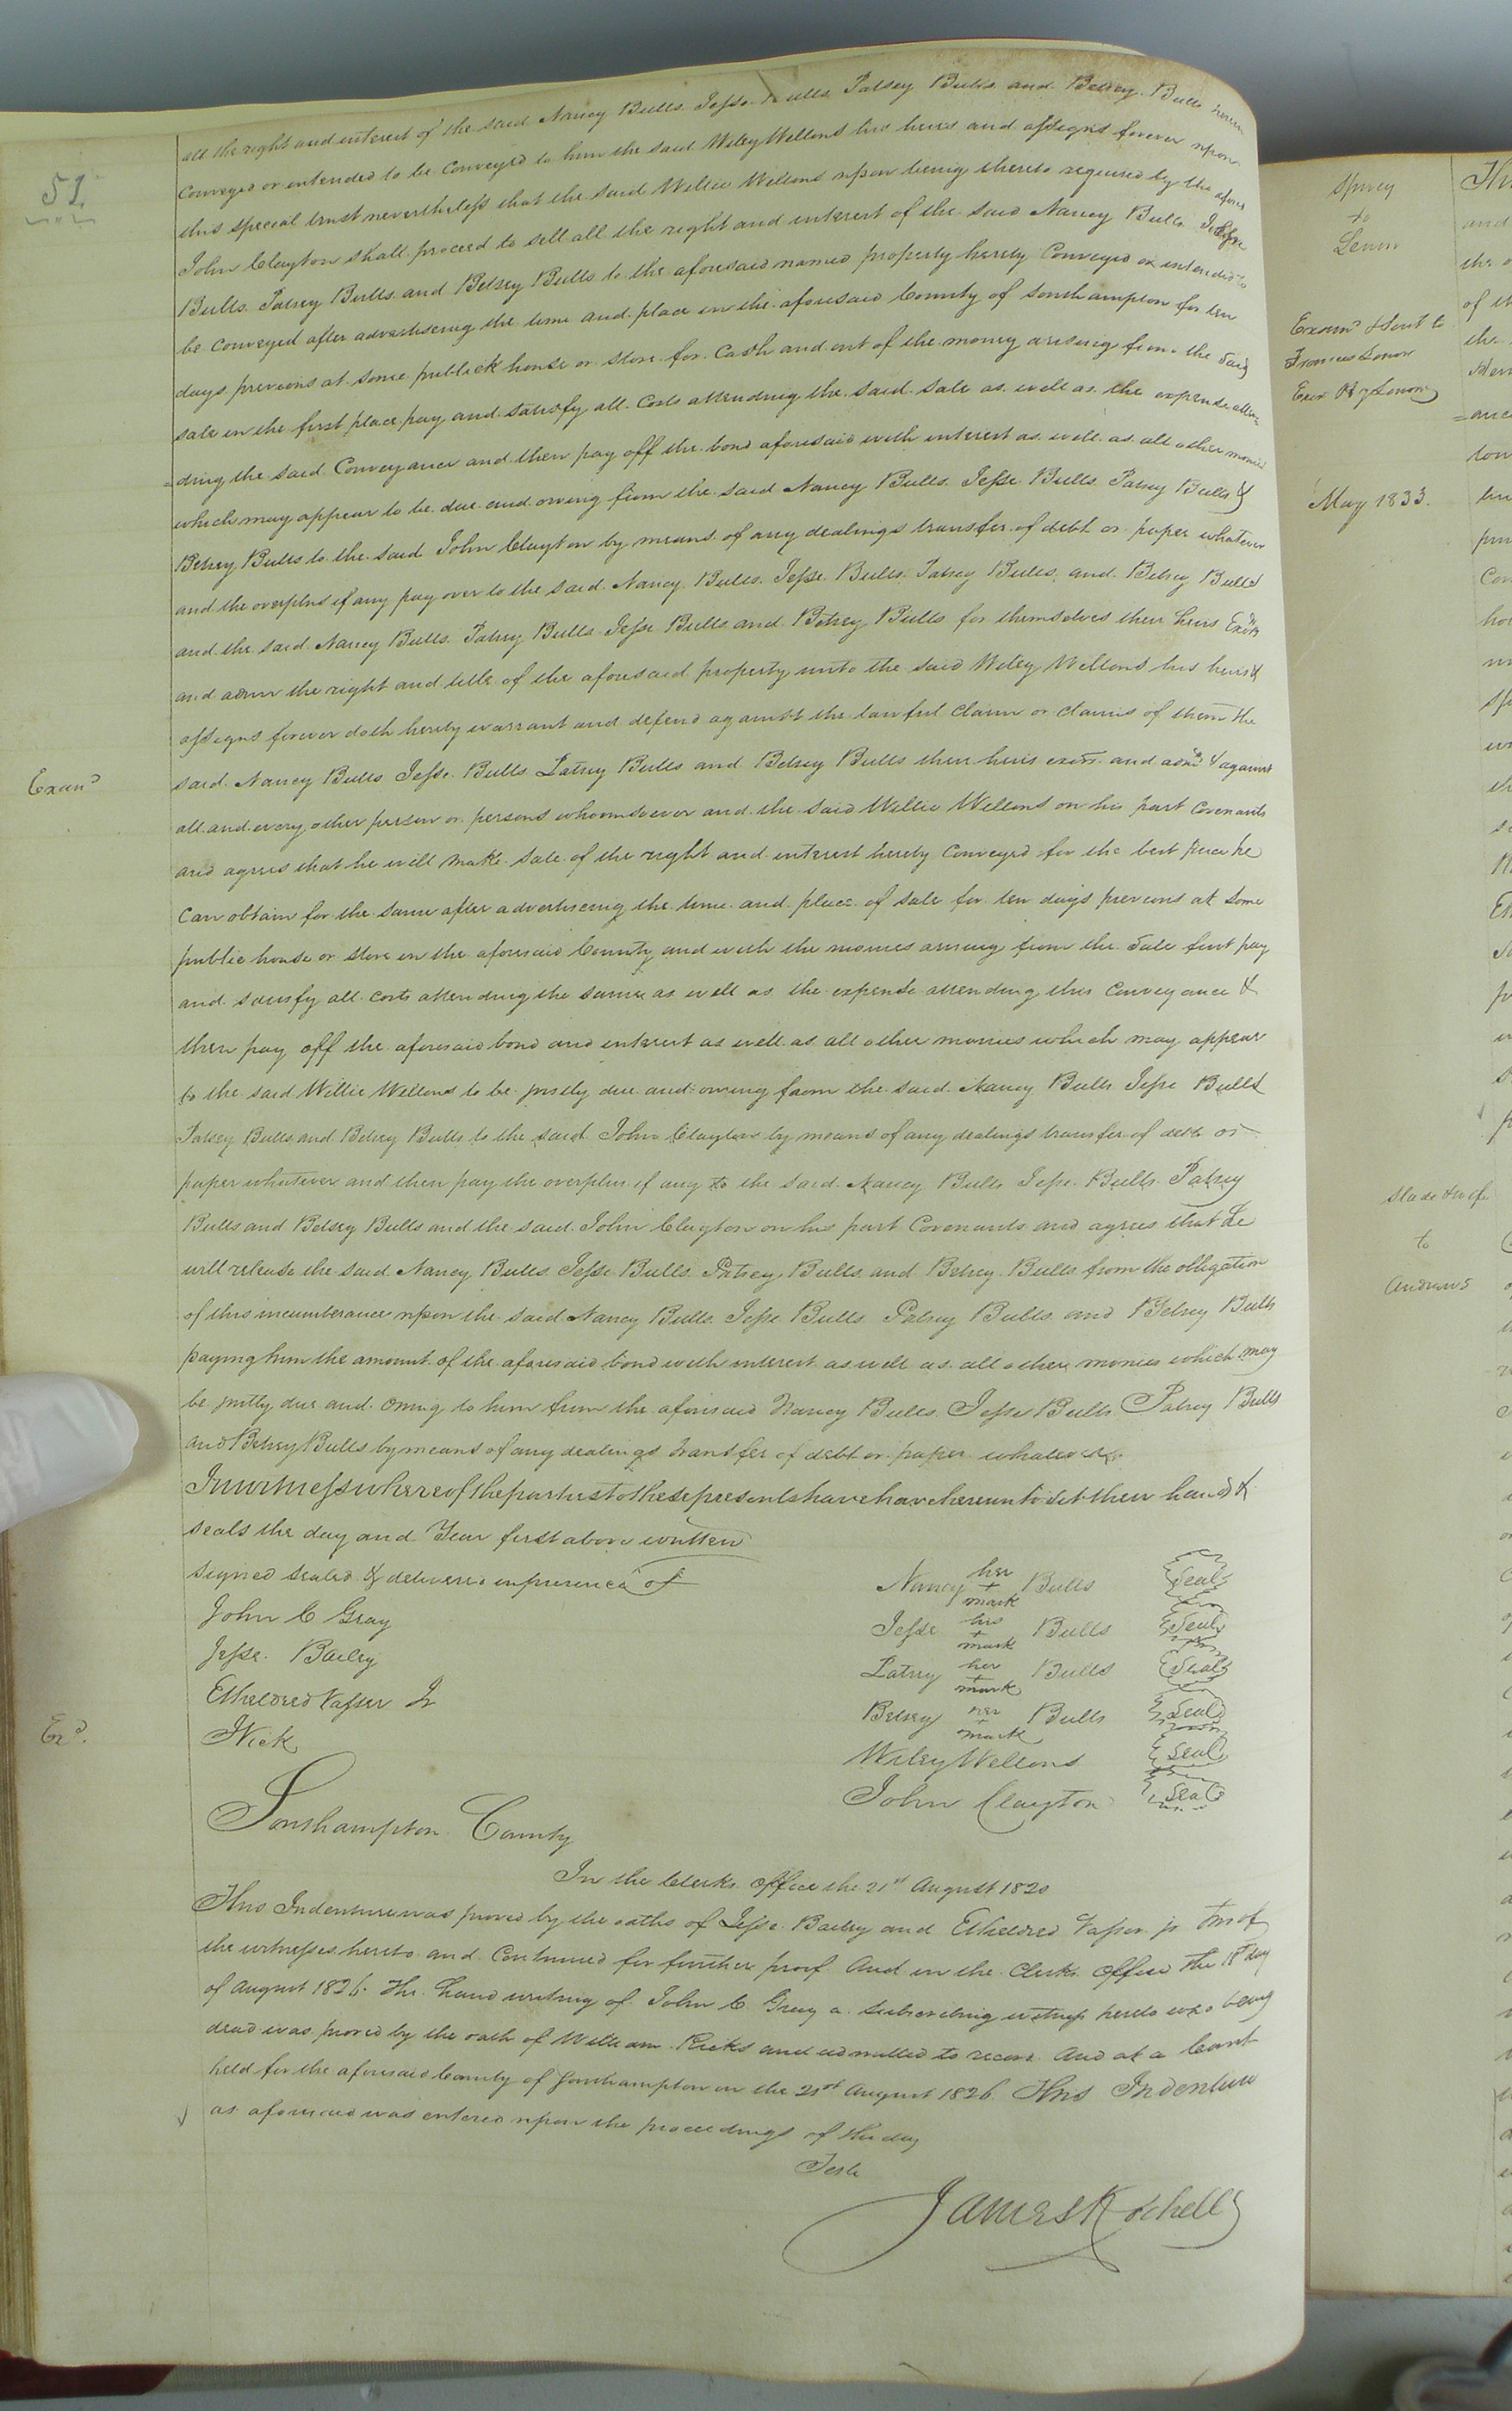 51.
all the right and interest of the said Nancy Bulls. Jesse Bulls Patsey Bulls and Betsey Bulls herein
conveyed or intended to be conveyed to him the said Wiley Wellons his heirs and assigns forever upon
this special trust nevertheless that the said Willie Wellons upon being thereto required by the afores
John Clayton shall proceed to sell all the right and interest of the said Nancy Bulls. Jesse
Bulls. Patsey Bulls and Betsey Bulls to the aforesaid named property hereby Conveyed or intended to
be conveyed after advertiseing the time and place in the aforesaid County of Southampton for ten
days previous at some publick house or store for Cash and out of the money ariseing from the said
sale in the first place pay and satisfy all costs attending the said sale as well as the expense atten
=ding the said Conveyance and then pay off the bond aforesaid with interest as well as all other monies
which may appear to be due and owing from the said Nancy Bulls. Jesse Bulls. Patsey Bulls &
Betsey Bulls to the said John Clayton by means of any dealings transfer of debt or paper whatever
and the overplus if any pay over to the said Nancy Bulls. Jesse Bulls. Patsey Bulls, and Betsey Bulls
and the said Nancy Bulls Patsey Bulls Jesse Bulls and Betsey Bulls for themselves their heirs Exors
and admr the right and title of the aforesaid property unto the said Wiley Wellons his heirs &
assigns forever doth hereby warrant and defend against the lawful claim or claims of them the
said Nancy Bulls Jesse Bulls Patsey Bulls and Betsey Bulls their heirs exors and admrs & against
Exand
all and every other person or persons whomsoever and the said Willie Wellons on his part Covenants
and agrees that he will make sale of the right and interest hereby Conveyed for the best price he
can obtain for the same after advertiseing the time and place of sale for ten days previous at some
public house or store in the aforesaid County and with the monies ariseing from the Sale first pay
and satisfy all costs attending the same as well as the expense attending this Conveyance &
then pay off the aforesaid bond and interest as well as all other monies which may appear
to the said Willie Wellons to be justly due and owing from the said Nancy Bulls Jesse Bulls
Patsey Bulls and Betsey Bulls to the said John Clayton by means of any dealings transfer of debt or
paper whatever and then pay the overplus if any to the said Nancy Bulls Jesse Bulls Patsey
Bulls and Betsey Bulls and the said John Clayton on his part Covenants and agrees that he
will release the said Nancy Bulls Jesse Bulls Patsey Bulls and Betsey Bulls from the obligation
of this incumberance upon the said Nancy Bulls. Jesse Bulls Patsey Bulls and Betsey Bulls
paying him the amount of the aforesaid bond with interest as well as all other monies which may
be justly due and owing to him from the aforesaid Nancy Bulls. Jesse Bulls Patsey Bulls
and Betsey Bulls by means of any dealings transfer of debt or paper whatever
In witness whereof the parties to these presents have have hereunto set their hands &
seals the day and Year first above written
signed sealed & delivered in presence of
John C Gray
Jesse. Bailey
Etheldred Vasser Jr
Nick
Nancy her + mark Bulls Seal
Jesse his + mark Bulls Seal
Patsey her + mark Bulls Seal
Betsey her + mark Bulls Seal
Wiley Wellons Seal
John Clayton Seal
Exd.
Southampton County
In the Clerks office the 21st August 1820
This Indenture was proved by the oaths of Jesse Bailey and Etheldred Vasser jr two of
the witnesses hereto and Continued for further proof. And in the Clerks Office the 18th day
of August 1826. The hand writing of John C Gray a subscribing witness hereto who being
dead was proved by the oath of William Ricks and admitted to record. And at a Court
held for the aforesaid County of Southampton on the 21st August 1826 This Indenture
as aforesaid was entered upon the proceedings of the day
Teste
James Rochelle
Spivey
to
Lenow
Examd & sent to
Frances Lenow
May 1833.
Slade & wife
to
Andrews